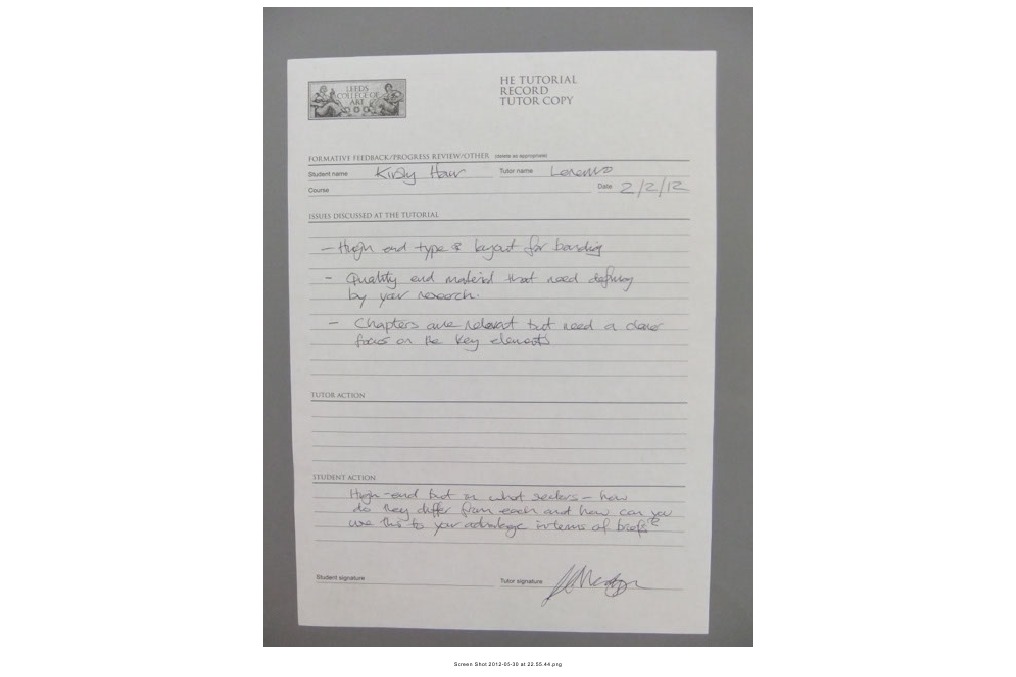 LEEDS
COLLEGE OF
ART
HE TUTORIAL
RECORD
TUTOR COPY
FORMATIVE FEEDBACK/PROGRESS REVIEW/OTHER (delete as appropriate)
Student name Kirsty Tutor name Lorenzo
Course Date 2/2/12
ISSUES DISCUSSED AT THE TUTORIAL
- High end type & layout for branding
- Quality and material that need defining
by your research.
- Chapters are relevant but need a closer
focus on the key elements
TUTOR ACTION
STUDENT ACTION
High-end but in what sectors - how
do they differ from each and how can you
use this to your advantage in terms of briefs?
Student signature Tutor signature
Screen Shot 2012-05-30 at 22.55.44.png